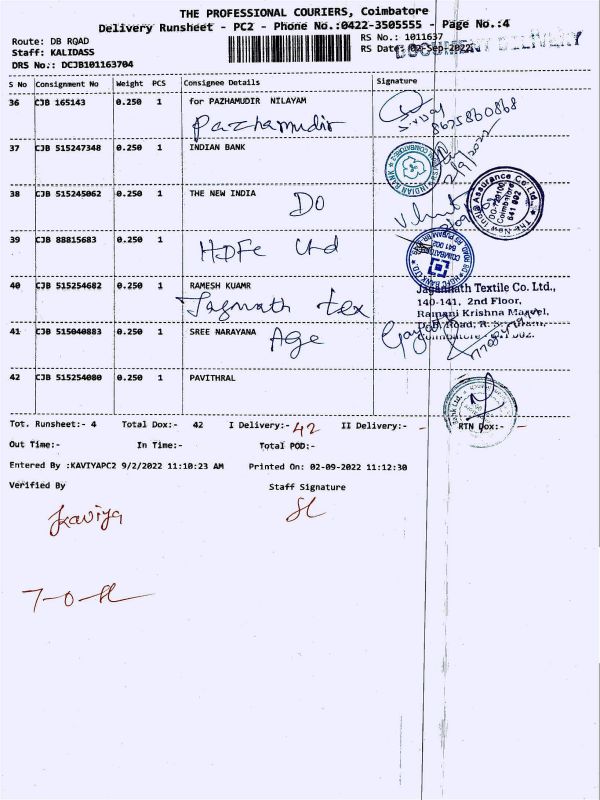 THE PROFESSIONAL COURIERS, Coimbatore
Delivery Runsheet - PC2 - Phone No.:0422-3505555 - Page No.:4
Route: DB ROAD
RS No.: 1011637
Staff: KALIDASS
RS Date: 02-Sep-2022
DOCUMENT DELIVERY
DRS No.: DCJB101163704
S No Consignment No Weight PCS Consignee Details Signature
36 CJB 165143 0.250 1 for PAZHAMUDIR NILAYAM
Pazhamudir
8675860868
37 CJB 515247348 0.250 1 INDIAN BANK
2/9/2022
38 CJB 515245062 0.250 1 THE NEW INDIA
DO
The New India Assurance Co. Ltd.,
DO-720100
Coimbatore
641 002
39 CJB 88815683 0.250 1
HDFC Ltd
COIMBATORE
641 002
40 CJB 515254682 0.250 1 RAMESH KUAMR
Jagnath tex
Jagannath Textile Co. Ltd.,
140-141, 2nd Floor,
Ramani Krishna
41 CJB 515040883 0.250 1 SREE NARAYANA
Age
42 CJB 515254080 0.250 1 PAVITHRAL
Tot. Runsheet:- 4 Total Dox:- 42 I Delivery:- 42 II Delivery:- - RTN Dox:- -
Out Time:- In Time:- Total POD:-
Entered By :KAVIYAPC2 9/2/2022 11:10:23 AM Printed On: 02-09-2022 11:12:30
Verified By Staff Signature
Kaviya